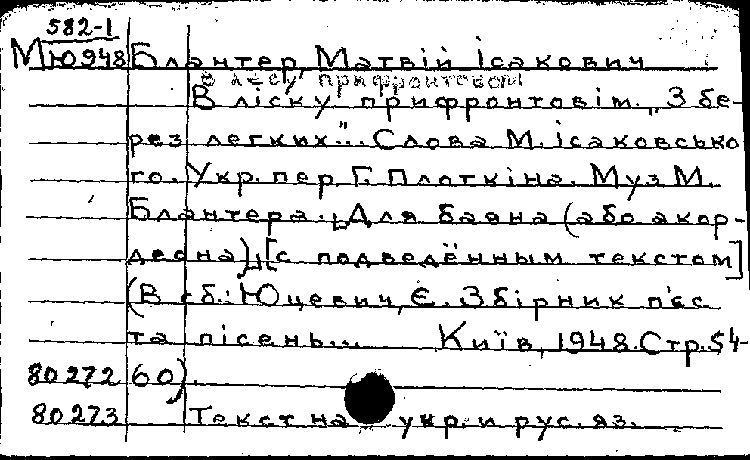 582-1
Мю948 Блантер, Матвій Ісакович
В лесу прифронтовом
В ліску прифронтовім. „З бе-
рез легких"... Слова М. Ісаковсько
го. Укр. пер. Г. Плоткіна. Муз М.
Блантера. [Для баяна (або акор-
деона)], [с подведённым текстом]
(В сб.: Юцевич, Є. Збірник п'єс
та пісень... Київ, 1948. Стр. 54-
80272 60).
80273 Текст на укр. и рус. яз.